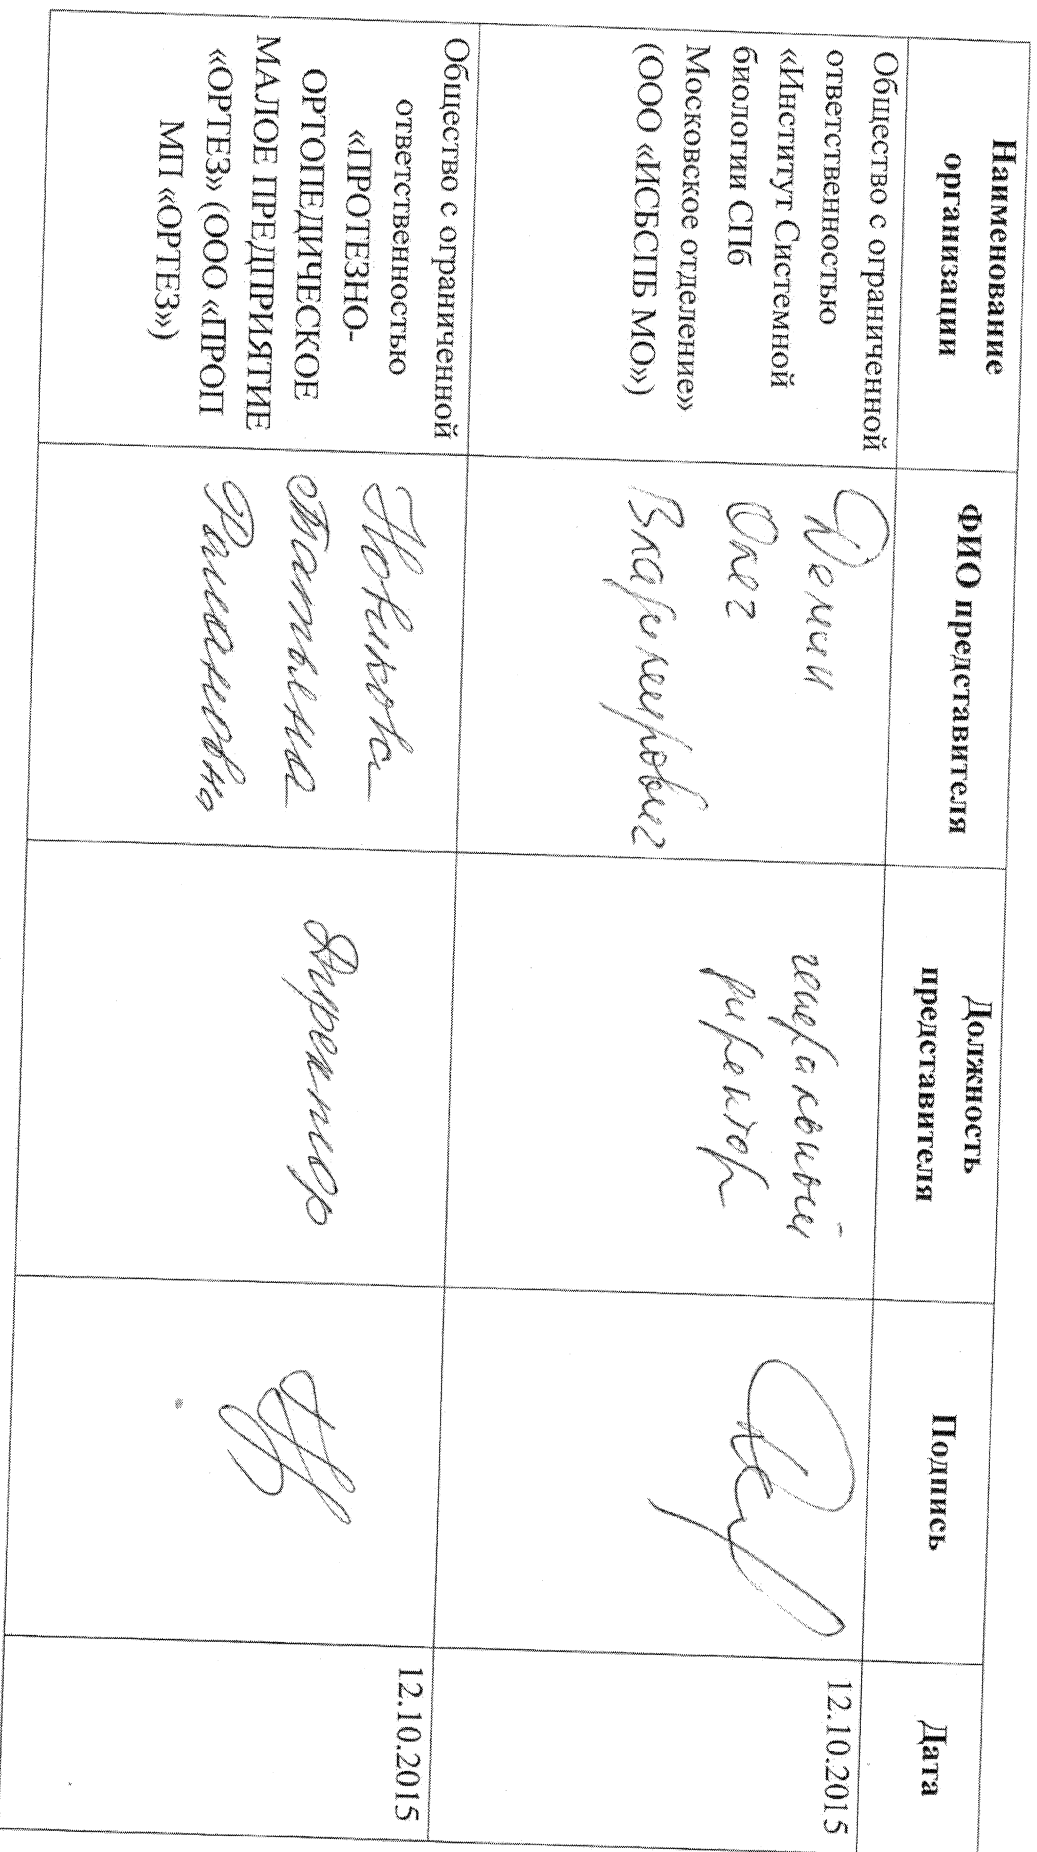 Наименование
организации
ФИО представителя
Должность
представителя
Подпись
Дата
Общество с ограниченной
ответственностью
«Институт Системной
биологии СПб
Московское отделение»
(ООО «ИСБСПБ МО»)
Демин
Олег
Владимирович
генеральный
директор
12.10.2015
Общество с ограниченной
ответственностью
«ПРОТЕЗНО-
ОРТОПЕДИЧЕСКОЕ
МАЛОЕ ПРЕДПРИЯТИЕ
«ОРТЕЗ» (ООО «ПРОП
МП «ОРТЕЗ»)
Новикова
Татьяна
Романовна
Директор
12.10.2015